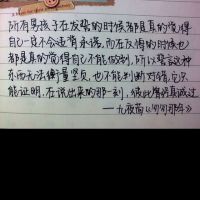 所有男孩子在发誓的时候都是真的觉得
自己一定不会违背承诺,而在反悔的时候也
都是真的觉得自己不能做到,所以誓言这种
东西无法衡量坚贞,也不能判断对错,它只
能证明,在说出来的那一刻,彼此曾经真诚过
——九夜茴《匆匆那年》